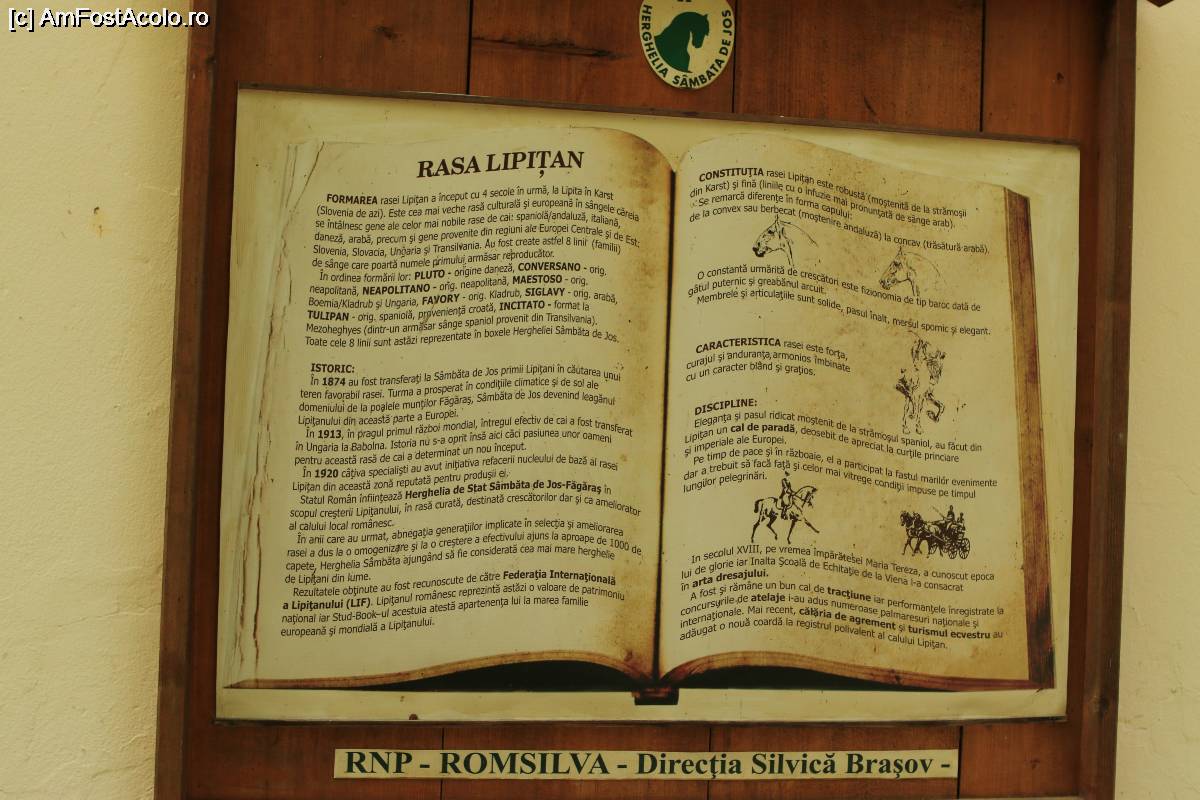 [c] AmFostAcolo.ro
HERGHELIA SÂMBATA DE JOS
RASA LIPIŢAN
FORMAREA rasei Lipiţan a început cu 4 secole în urmă, la Lipita în Karst
(Slovenia de azi). Este cea mai veche rasă culturală şi europeană în sângele căreia
se întâlnesc gene ale celor mai nobile rase de cai: spaniolă/andaluză, italiană,
daneză, arabă, precum şi gene provenite din regiuni ale Europei Centrale şi de Est:
Slovenia, Slovacia, Ungaria şi Transilvania. Au fost create astfel 8 linii (familii)
de sânge care poartă numele primului armăsar reproducător.
În ordinea formării lor: PLUTO - origine daneză, CONVERSANO - orig.
neapolitană, NEAPOLITANO - orig. neapolitană, MAESTOSO - orig.
Boemia/Kladrub şi Ungaria, FAVORY - orig. Kladrub, SIGLAVY - orig. arabă,
TULIPAN - orig. spaniolă, provenienţă croată, INCITATO - format la
Mezoheghyes (dintr-un armăsar sânge spaniol provenit din Transilvania).
Toate cele 8 linii sunt astăzi reprezentate în boxele Hergheliei Sâmbăta de Jos.
ISTORIC:
În 1874 au fost transferaţi la Sâmbăta de Jos primii Lipiţani în căutarea unui
teren favorabil rasei. Turma a prosperat în condiţiile climatice şi de sol ale
domeniului de la poalele munţilor Făgăraş, Sâmbăta de Jos devenind leagănul
Lipiţanului din această parte a Europei.
În 1913, în pragul primul război mondial, întregul efectiv de cai a fost transferat
în Ungaria la Babolna. Istoria nu s-a oprit însă aici căci pasiunea unor oameni
pentru această rasă de cai a determinat un nou început.
În 1920 câţiva specialişti au avut iniţiativa refacerii nucleului de bază al rasei
Lipiţan din această zonă reputată pentru produşii ei.
Statul Român înfiinţează Herghelia de Stat Sâmbăta de Jos-Făgăraş în
scopul creşterii Lipiţanului, în rasă curată, destinată crescătorilor dar şi ca ameliorator
al calului local românesc.
În anii care au urmat, abnegaţia generaţiilor implicate în selecţia şi ameliorarea
rasei a dus la o omogenizare şi la o creştere a efectivului ajuns la aproape de 1000 de
capete, Herghelia Sâmbăta ajungând să fie considerată cea mai mare herghelie
de Lipiţani din lume.
Rezultatele obţinute au fost recunoscute de către Federaţia Internaţională
a Lipiţanului (LIF). Lipiţanul românesc reprezintă astăzi o valoare de patrimoniu
naţional iar Stud-Book-ul acestuia atestă apartenenţa lui la marea familie
europeană şi mondială a Lipiţanului.
CONSTITUŢIA rasei Lipiţan este robustă (moştenită de la strămoşii
din Karst) şi fină (liniile cu o infuzie mai pronunţată de sânge arab).
Se remarcă diferenţe în forma capului:
de la convex sau berbecat (moştenire andaluză) la concav (trăsătură arabă).
O constantă urmărită de crescători este fizionomia de tip baroc dată de
gâtul puternic şi greabănul arcuit.
Membrele şi articulaţiile sunt solide, pasul înalt, mersul spornic şi elegant.
CARACTERISTICA rasei este forţa,
curajul şi anduranţa armonios îmbinate
cu un caracter blând şi graţios.
DISCIPLINE:
Eleganţa şi pasul ridicat moştenit de la strămoşul spaniol, au făcut din
Lipiţan un cal de paradă, deosebit de apreciat la curţile princiare
şi imperiale ale Europei.
Pe timp de pace şi în războaie, el a participat la fastul marilor evenimente
dar a trebuit să facă faţă şi celor mai vitrege condiţii impuse pe timpul
lungilor pelegrinări.
În secolul XVIII, pe vremea împărătesei Maria Tereza, a cunoscut epoca
lui de glorie iar Inalta Şcoală de Echitaţie de la Viena l-a consacrat
în arta dresajului.
A fost şi rămâne un bun cal de tracţiune iar performanţele înregistrate la
concursurile de atelaje i-au adus numeroase palmaresuri naţionale şi
internaţionale. Mai recent, călăria de agrement şi turismul ecvestru au
adăugat o nouă coardă la registrul polivalent al calului Lipiţan.
RNP - ROMSILVA - Direcţia Silvică Braşov -